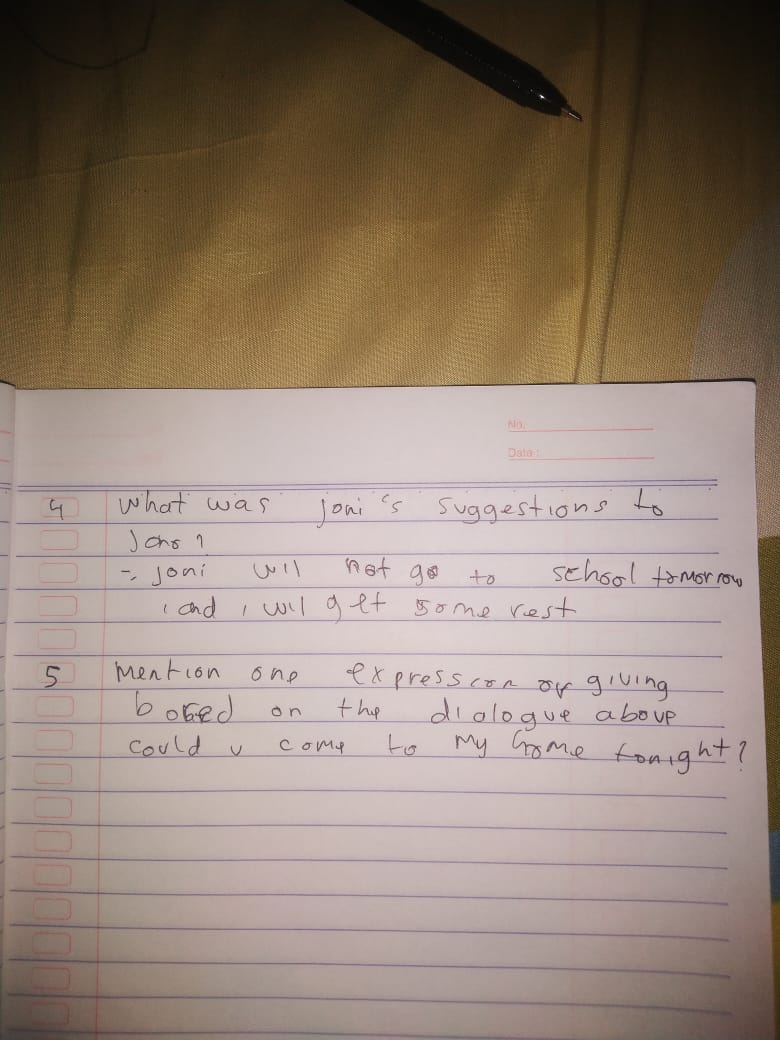 No.
Date :
4 What was joni's suggestions to
Jons?
-, joni wil not go to school tomorrow
, and , wil gett some rest
5 Mention one expression of giving
based on the dialogue above
could u come to my home tonight?